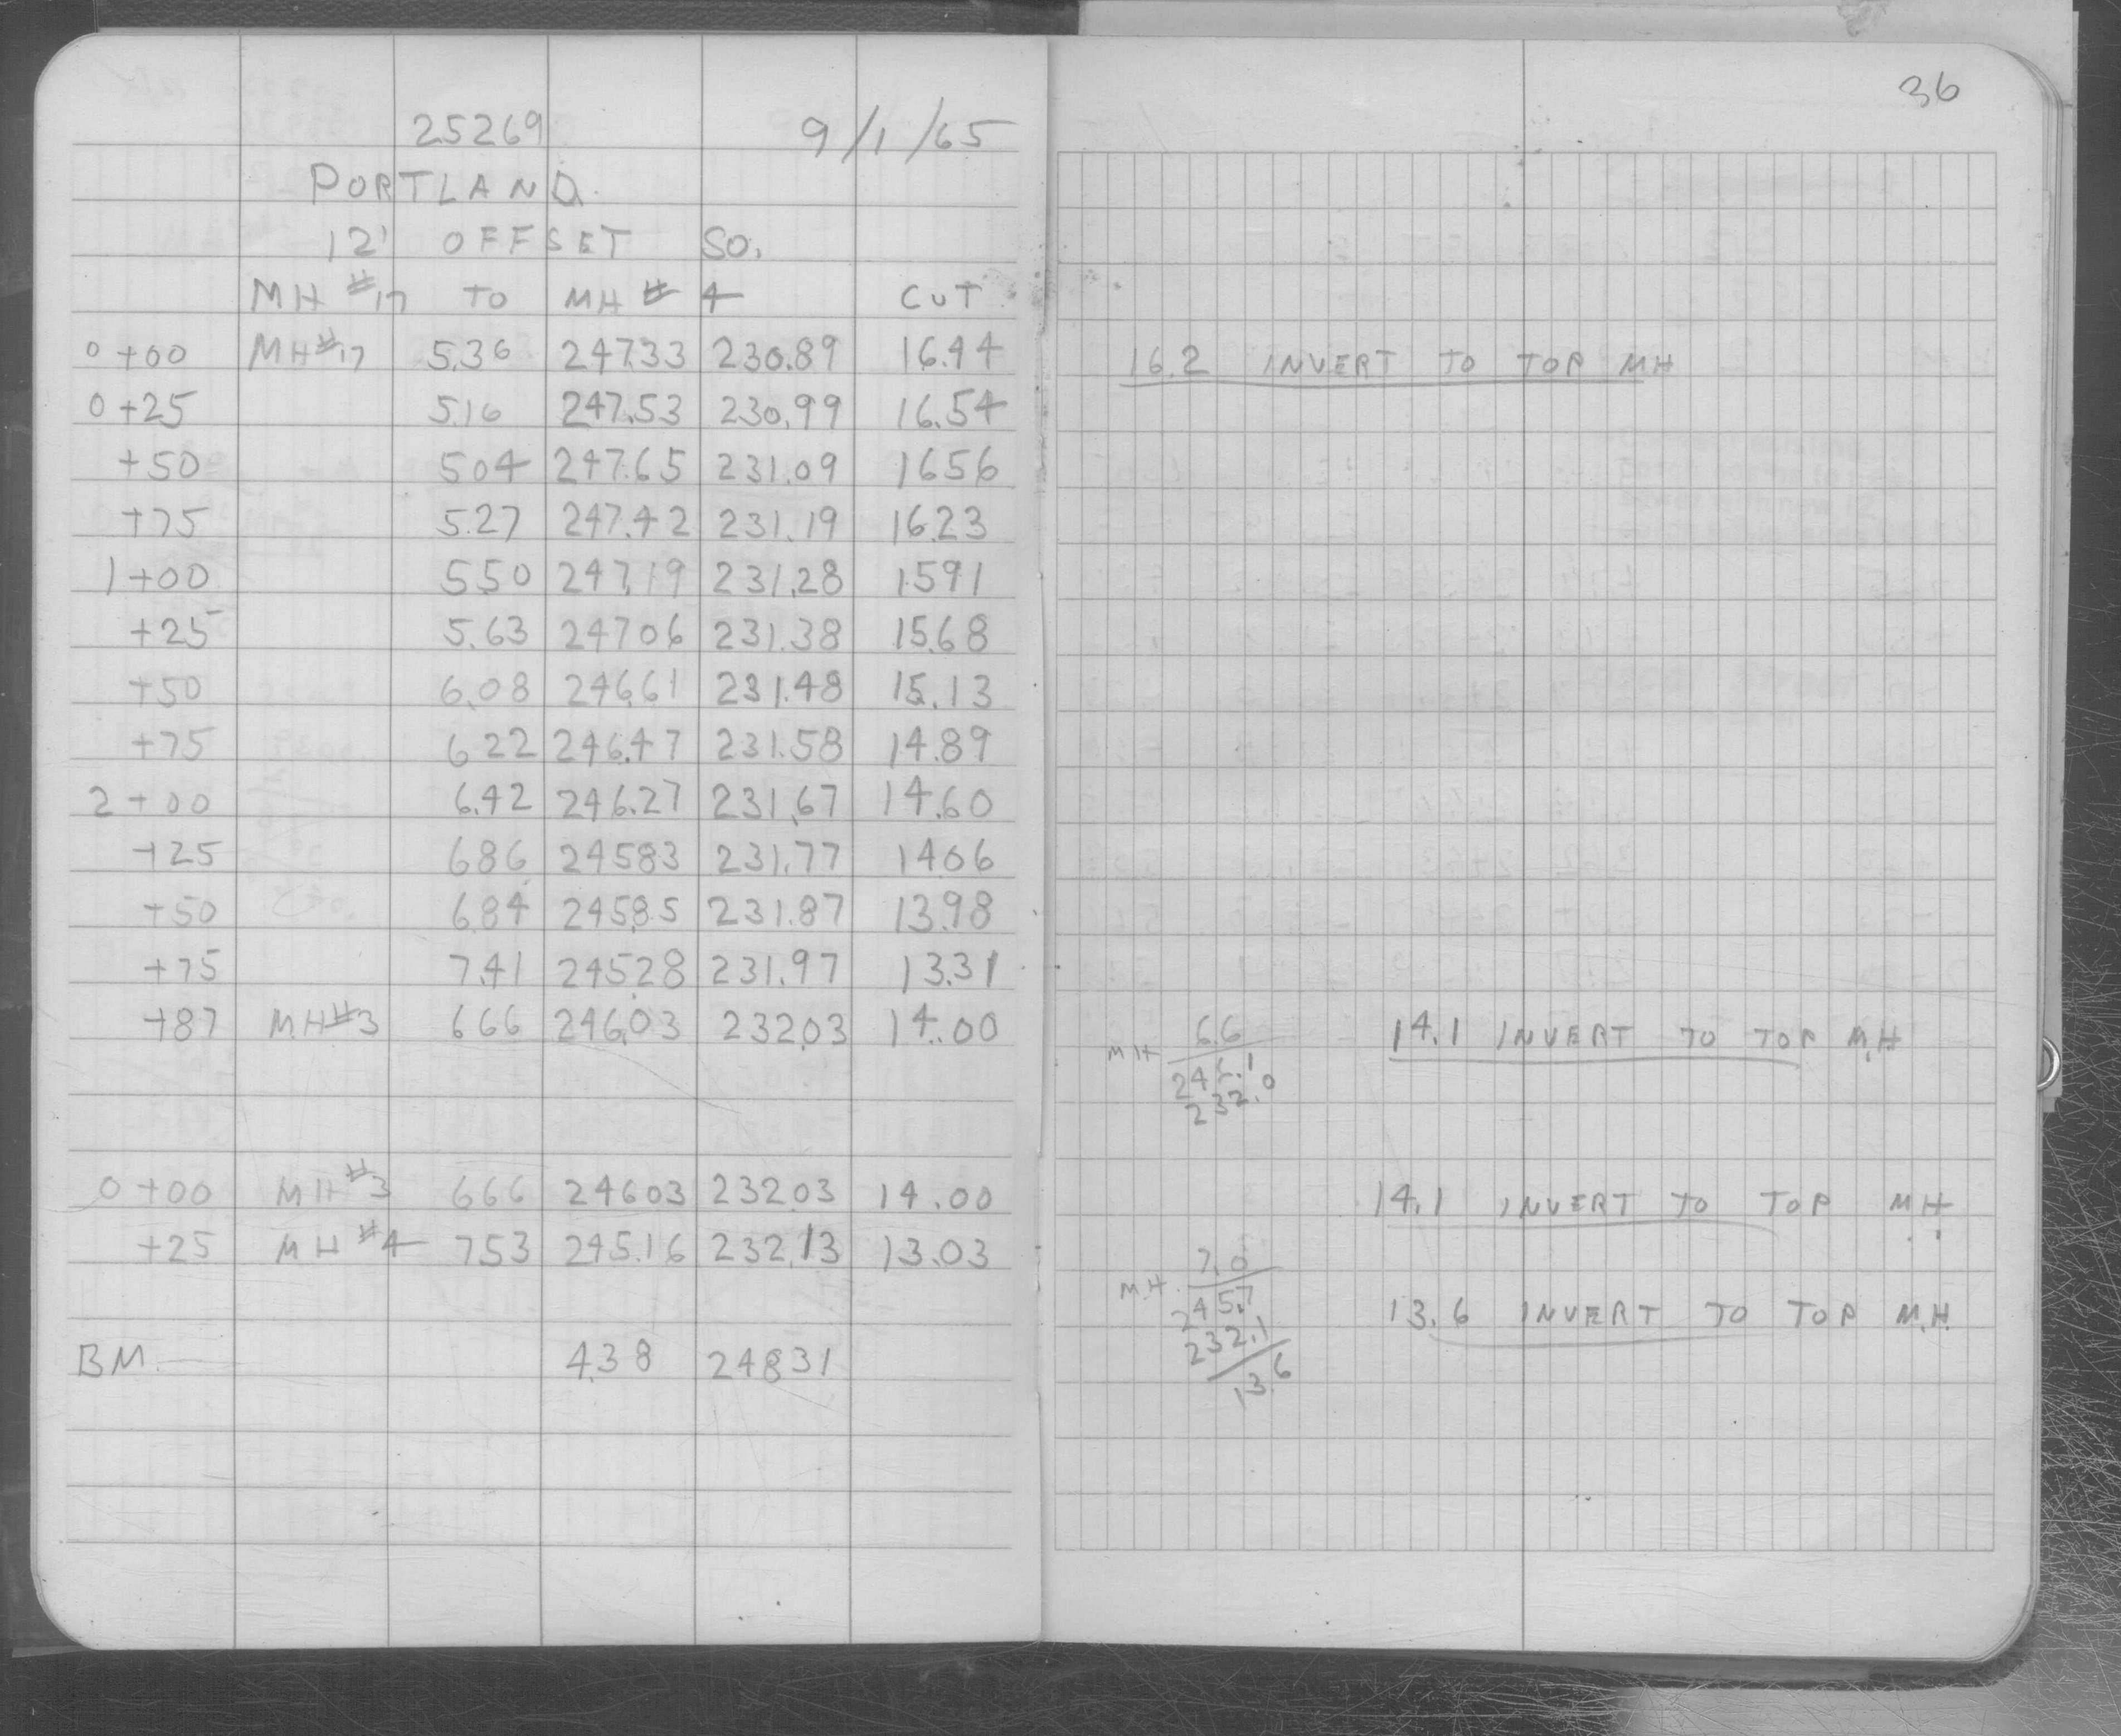 25269 9/1/65
PORTLAND.
12' OFFSET SO.
MH #17 TO MH # 4 CUT
0+00 MH#17 5.36 247.33 230.89 16.44
0+25 5.16 247.53 230.99 16.54
+50 504 247.65 231.09 1656
+75 5.27 247.42 231.19 16.23
1+00 550 247.19 231.28 1591
+25 5.63 24706 231.38 15.68
+50 6.08 246.61 231.48 15.13
+75 622 246.47 231.58 14.89
2+00 6.42 246.27 231.67 14.60
+25 686 24583 231.77 1406
+50 684 245.85 231.87 13.98
+75 7.41 245.28 231.97 13.31
+87 MH#3 666 246.03 232.03 14.00
0+00 MH#3 666 24603 23203 14.00
+25 MH #4 753 245.16 232.13 13.03
BM 4.38 24831
36
16.2 INVERT TO TOP MH
6.6 14.1 INVERT TO TOP M.H
MH
246.1
232.0
14.1 INVERT TO TOP MH
7.0
M.H. 245.7 13.6 INVERT TO TOP M.H.
232.1
13.6